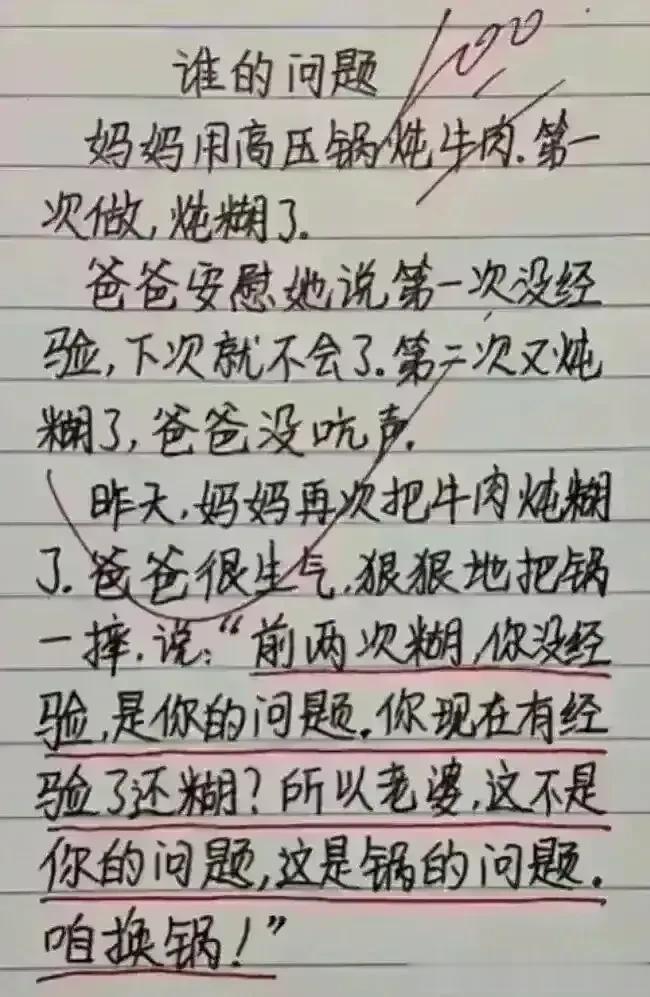 100
谁的问题
妈妈用高压锅炖牛肉.第一
次做,炖糊了.
爸爸安慰她说第一次没经
验,下次就不会了.第二次又炖
糊了,爸爸没吭声.
昨天,妈妈再次把牛肉炖糊
了.爸爸很生气,狠狠地把锅
一摔,说:“前两次糊,你没经
验,是你的问题.你现在有经
验了还糊?所以老婆,这不是
你的问题,这是锅的问题.
咱换锅!”